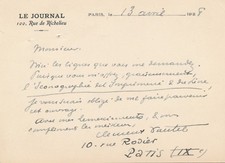 LE JOURNAL
100, Rue de Richelieu
PARIS, le 13 avril 1938
Monsieur
Voici les lignes que vous me demandez.
Puisque vous m'offrez, gracieusement,
l'Iconographie des Imprimeurs
je vous obligé de me faire parvenir
cet ouvrage.
Avec mes remerciements,
compliments les meilleurs
Clément Vautel
10 - rue Rodier
Paris (IX)